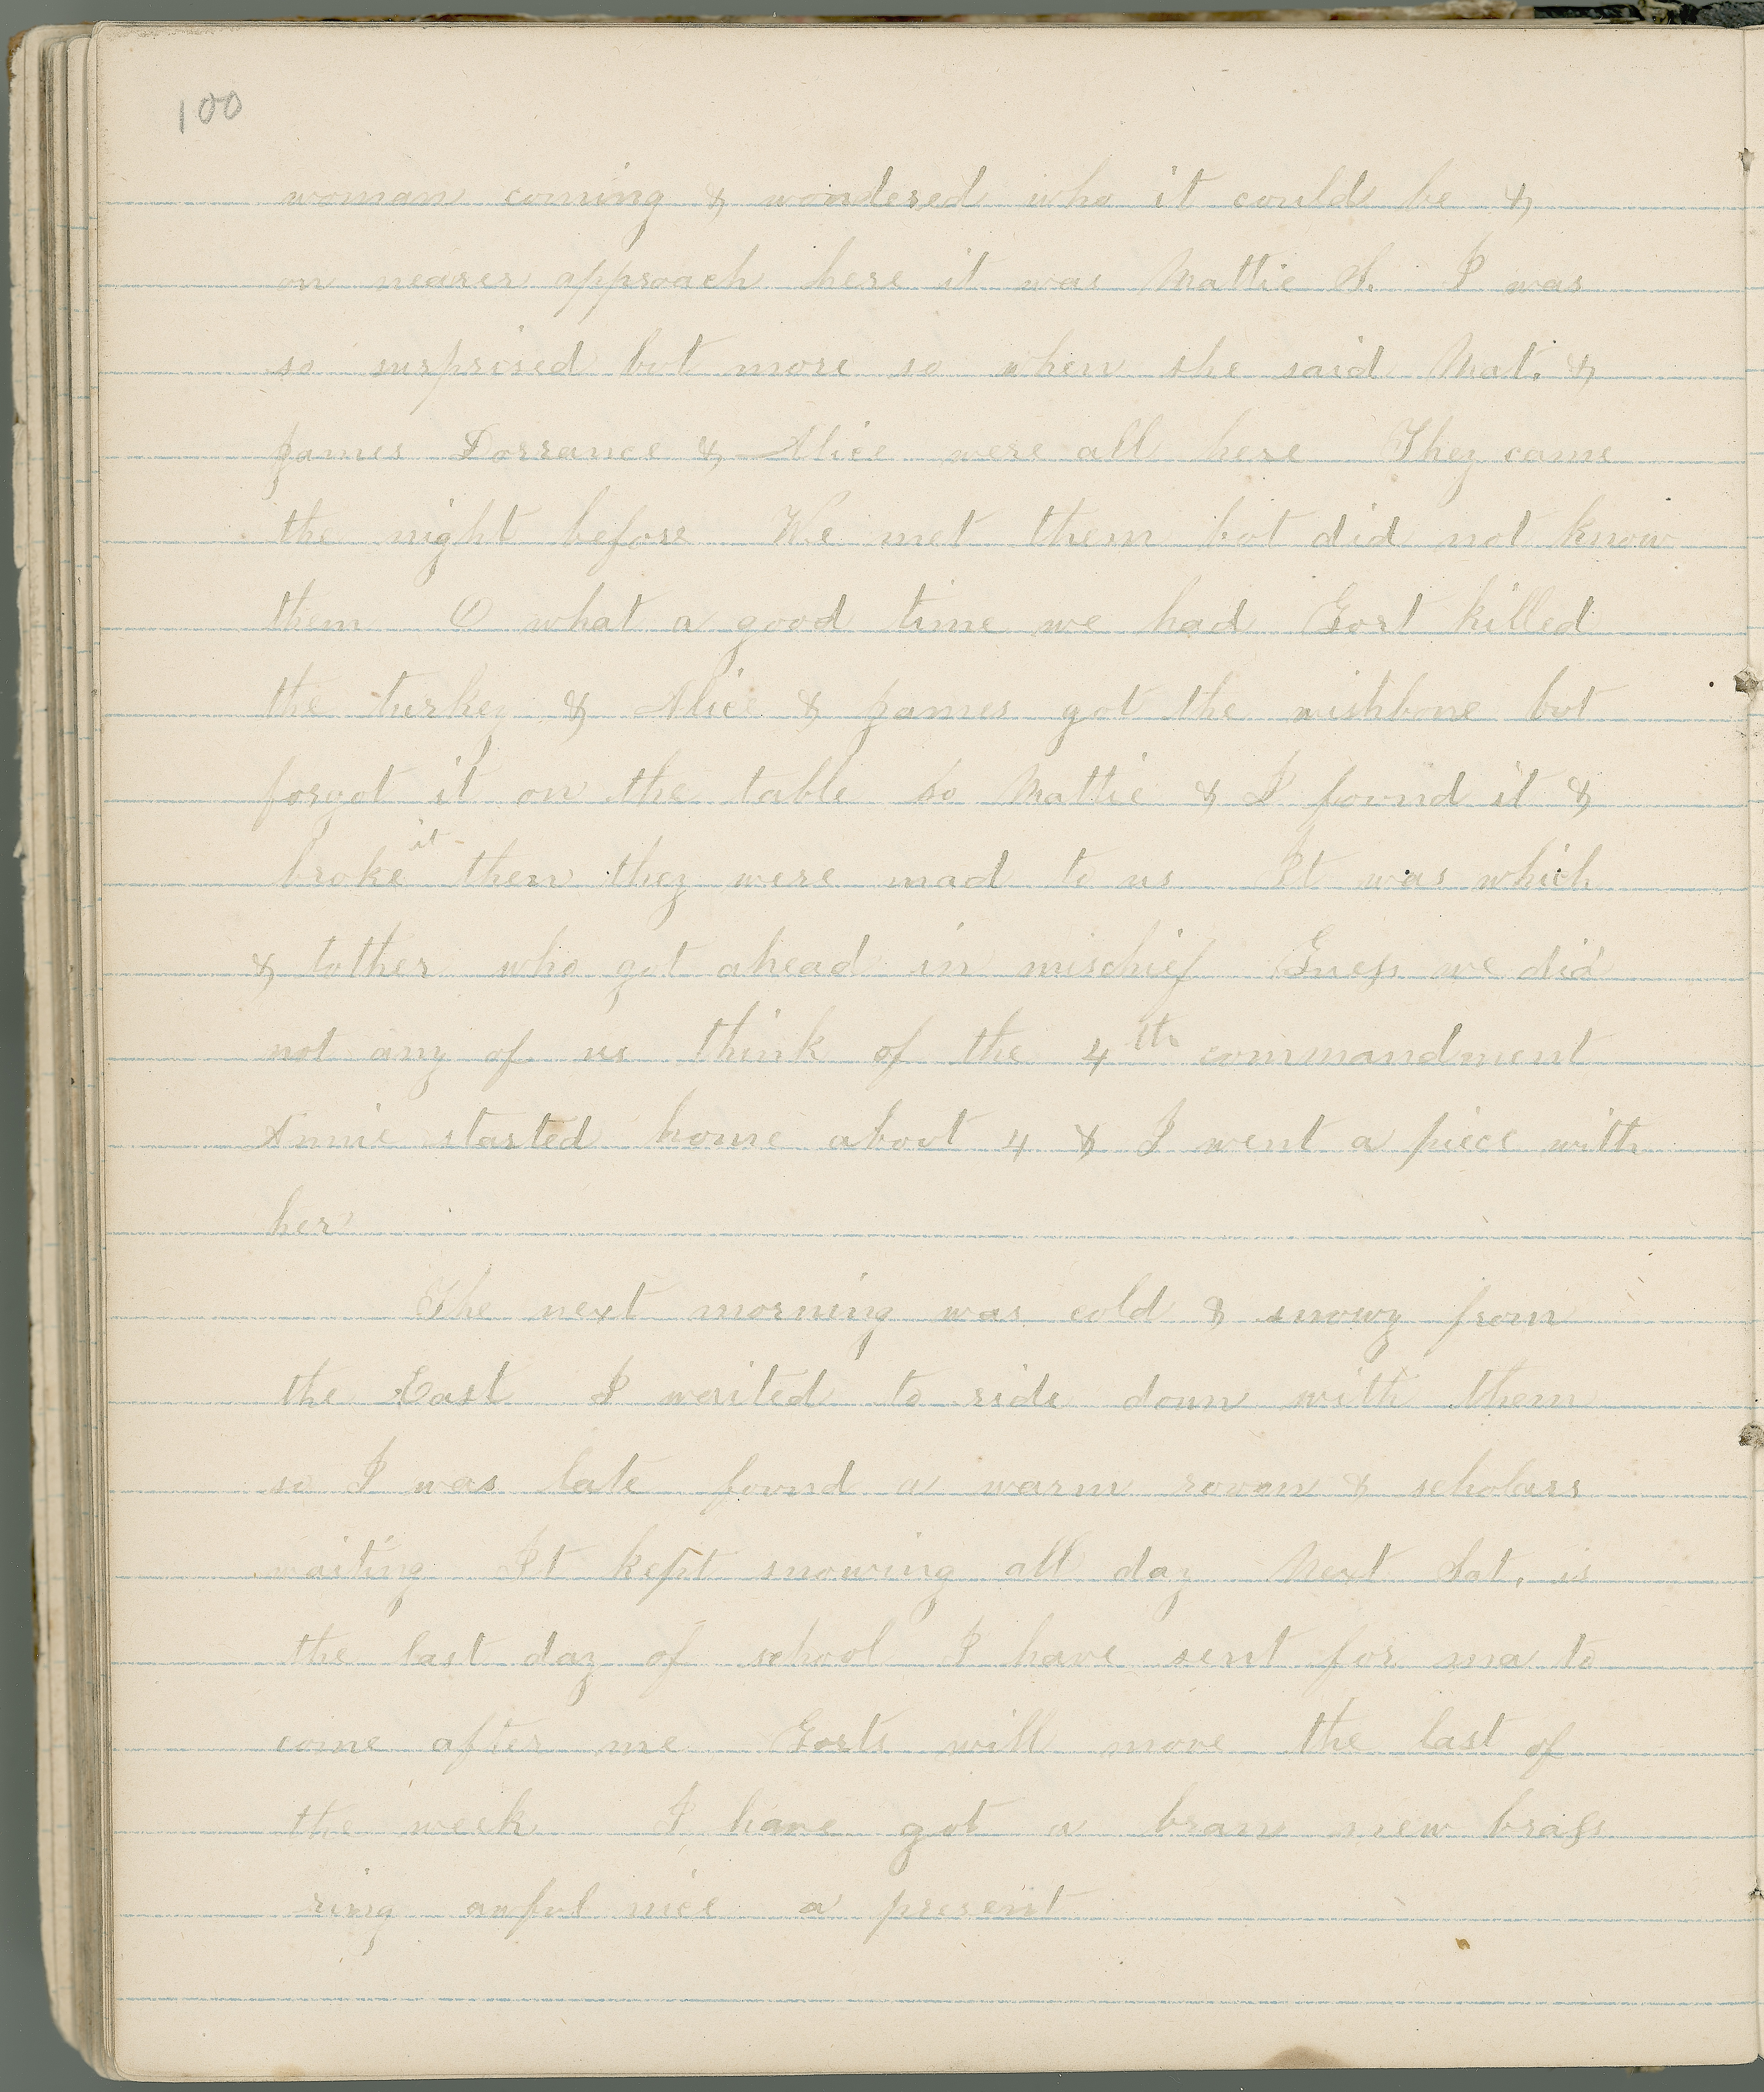 100
woman coming & wondered who it could be &
on nearer approach here it was Mattie S. I was
so surprised but more so when she said Mat. &
James Dorrance & Alice were all here They came
the night before We met them but did not know
them O what a good time we had Gort killed
the turkey & Alice & James got the wishbone but
forgot it on the table so Mattie & I found it &
broke it then they were mad to us It was which
& tother who got ahead in mischief Guess we did
not any of us think of the 4th commandment
Annie started home about 4 & I went a piece with
her
The next morning was cold & snowy from
the East I waited to ride down with them
so I was late found a warm room & scholars
waiting It kept snowing all day Next Sat. is
the last day of school I have sent for ma to
come after me Gorts will move the last of
the week I have got a bran new brass
ring awful nice a present